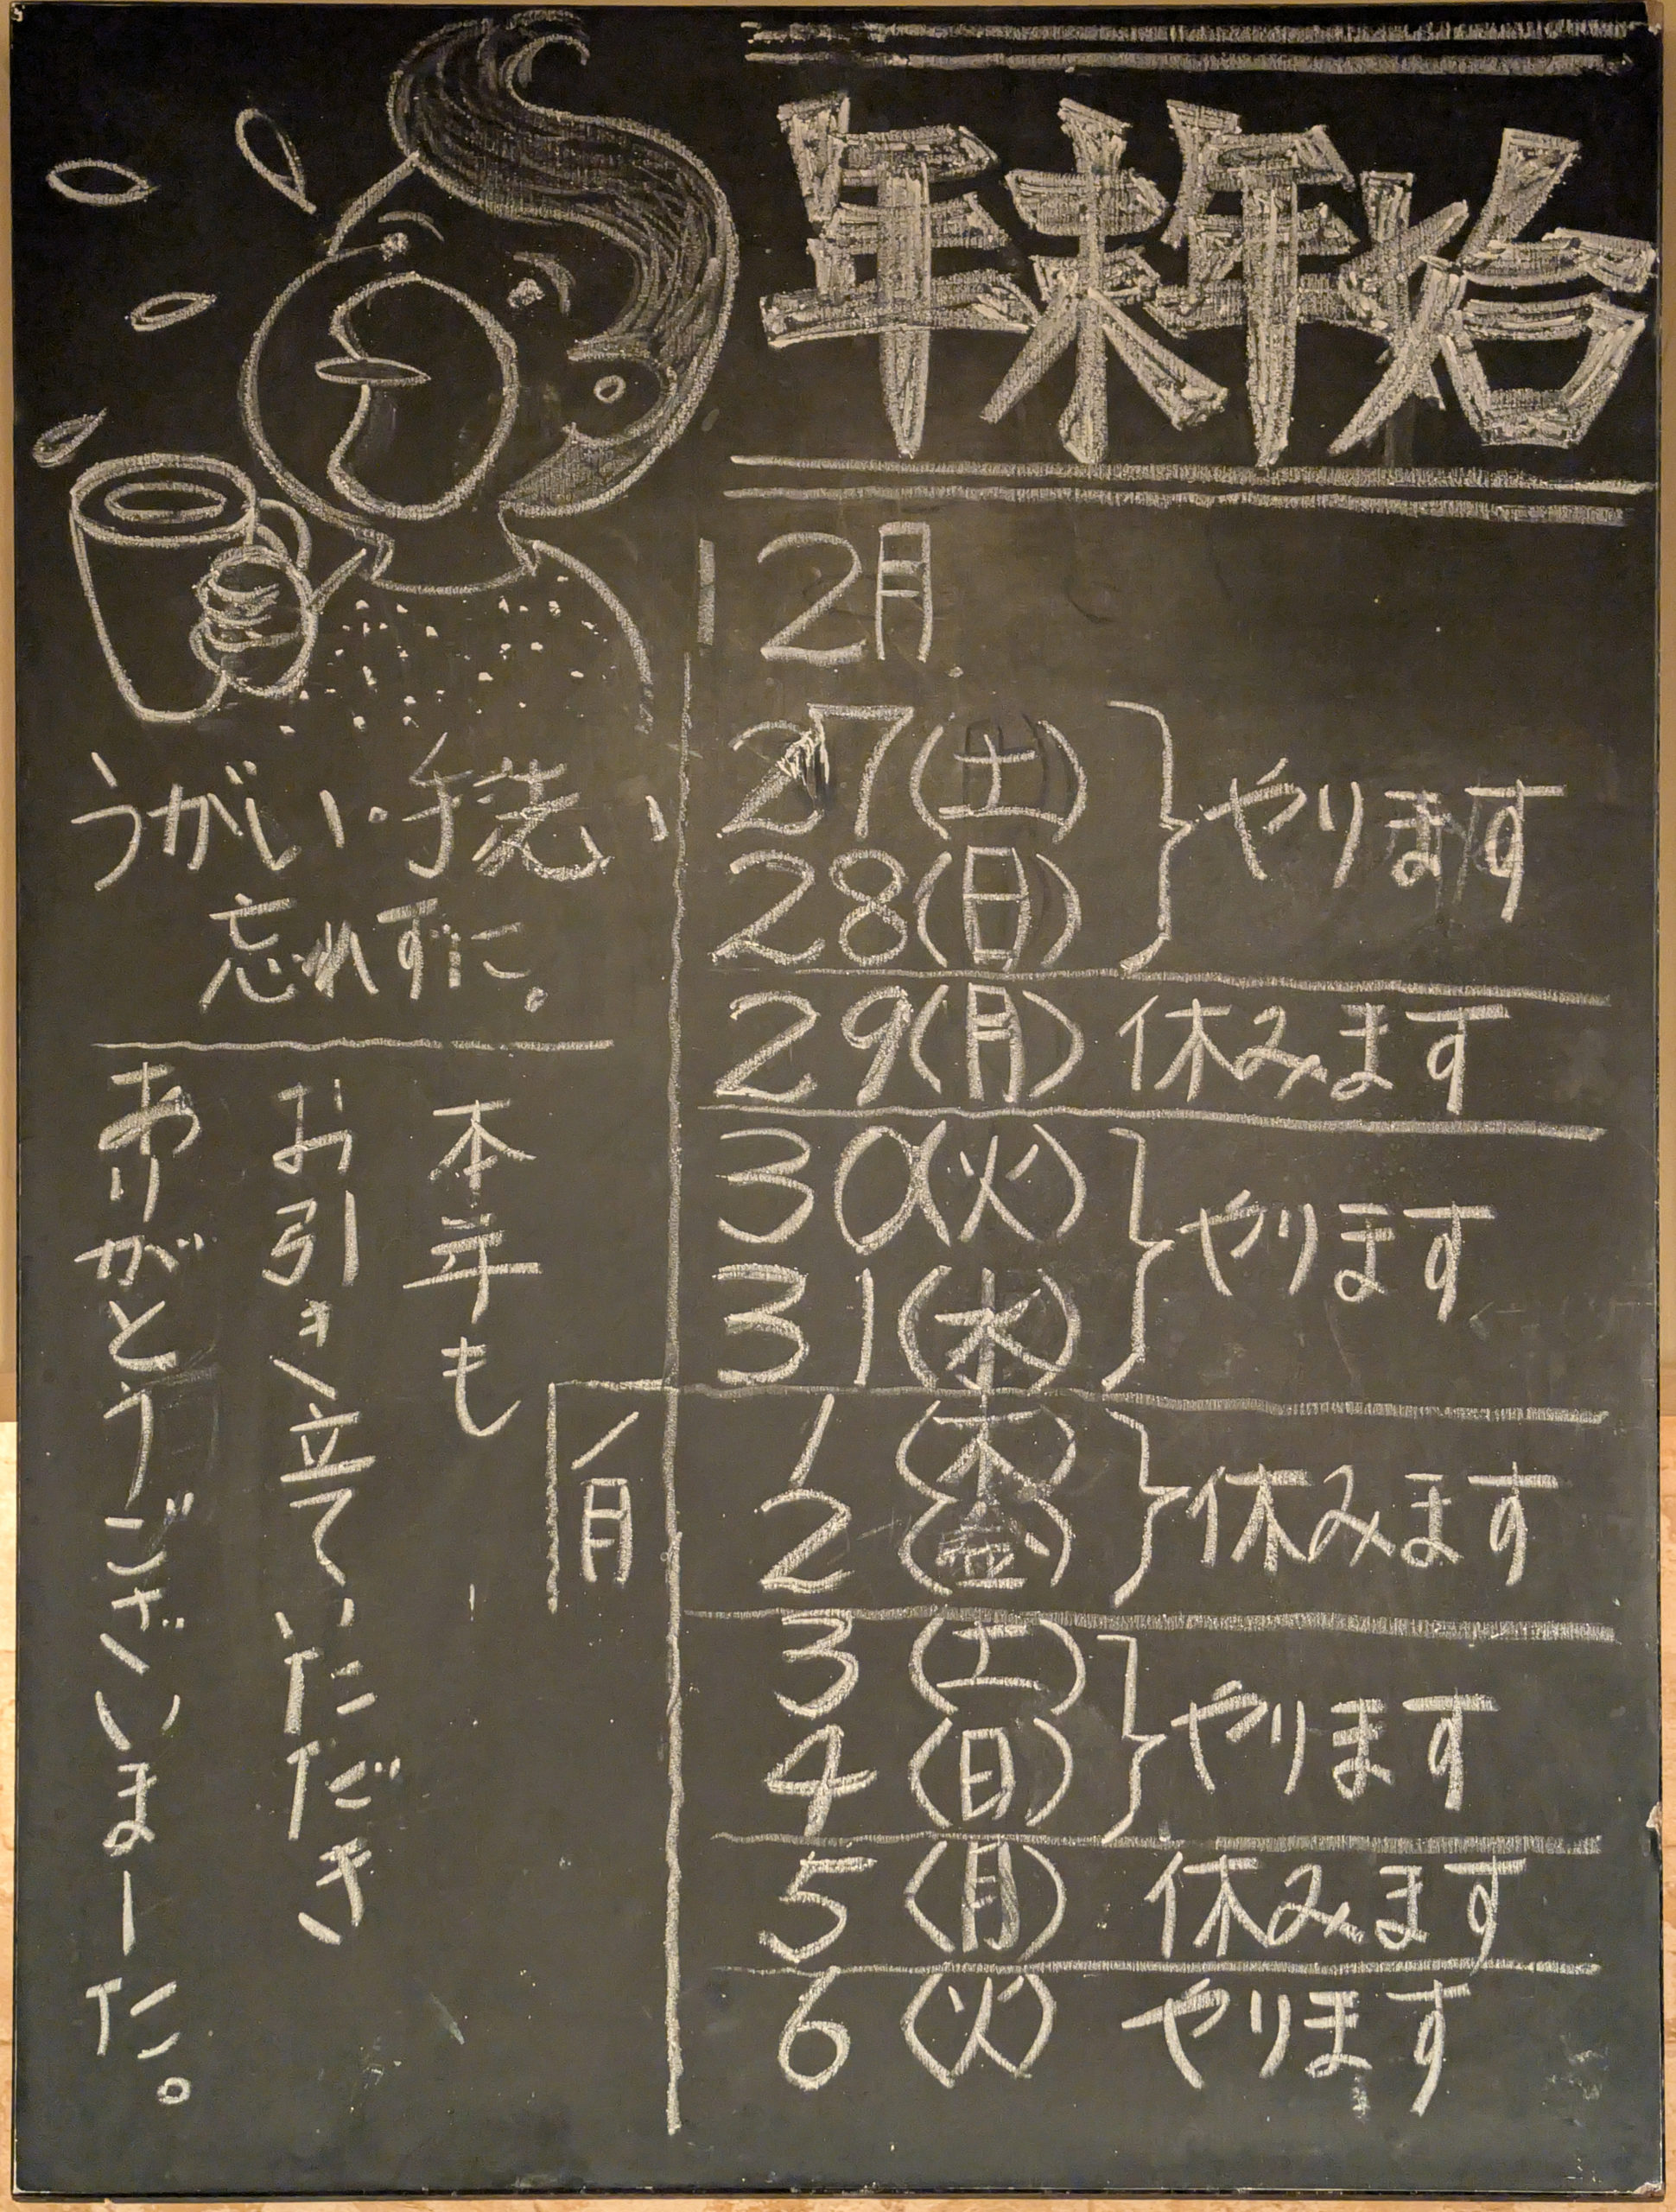 年末年始
12月
27(土)
28(日)
やります
29(月) 休みます
30(火)
31(水)
やります
1月
1(木)
2(金)
休みます
3(土)
4(日)
やります
5(月) 休みます
6(火) やります
うがい・手洗い
忘れずに。
本年も
お引き立ていただき
ありがとうございました。